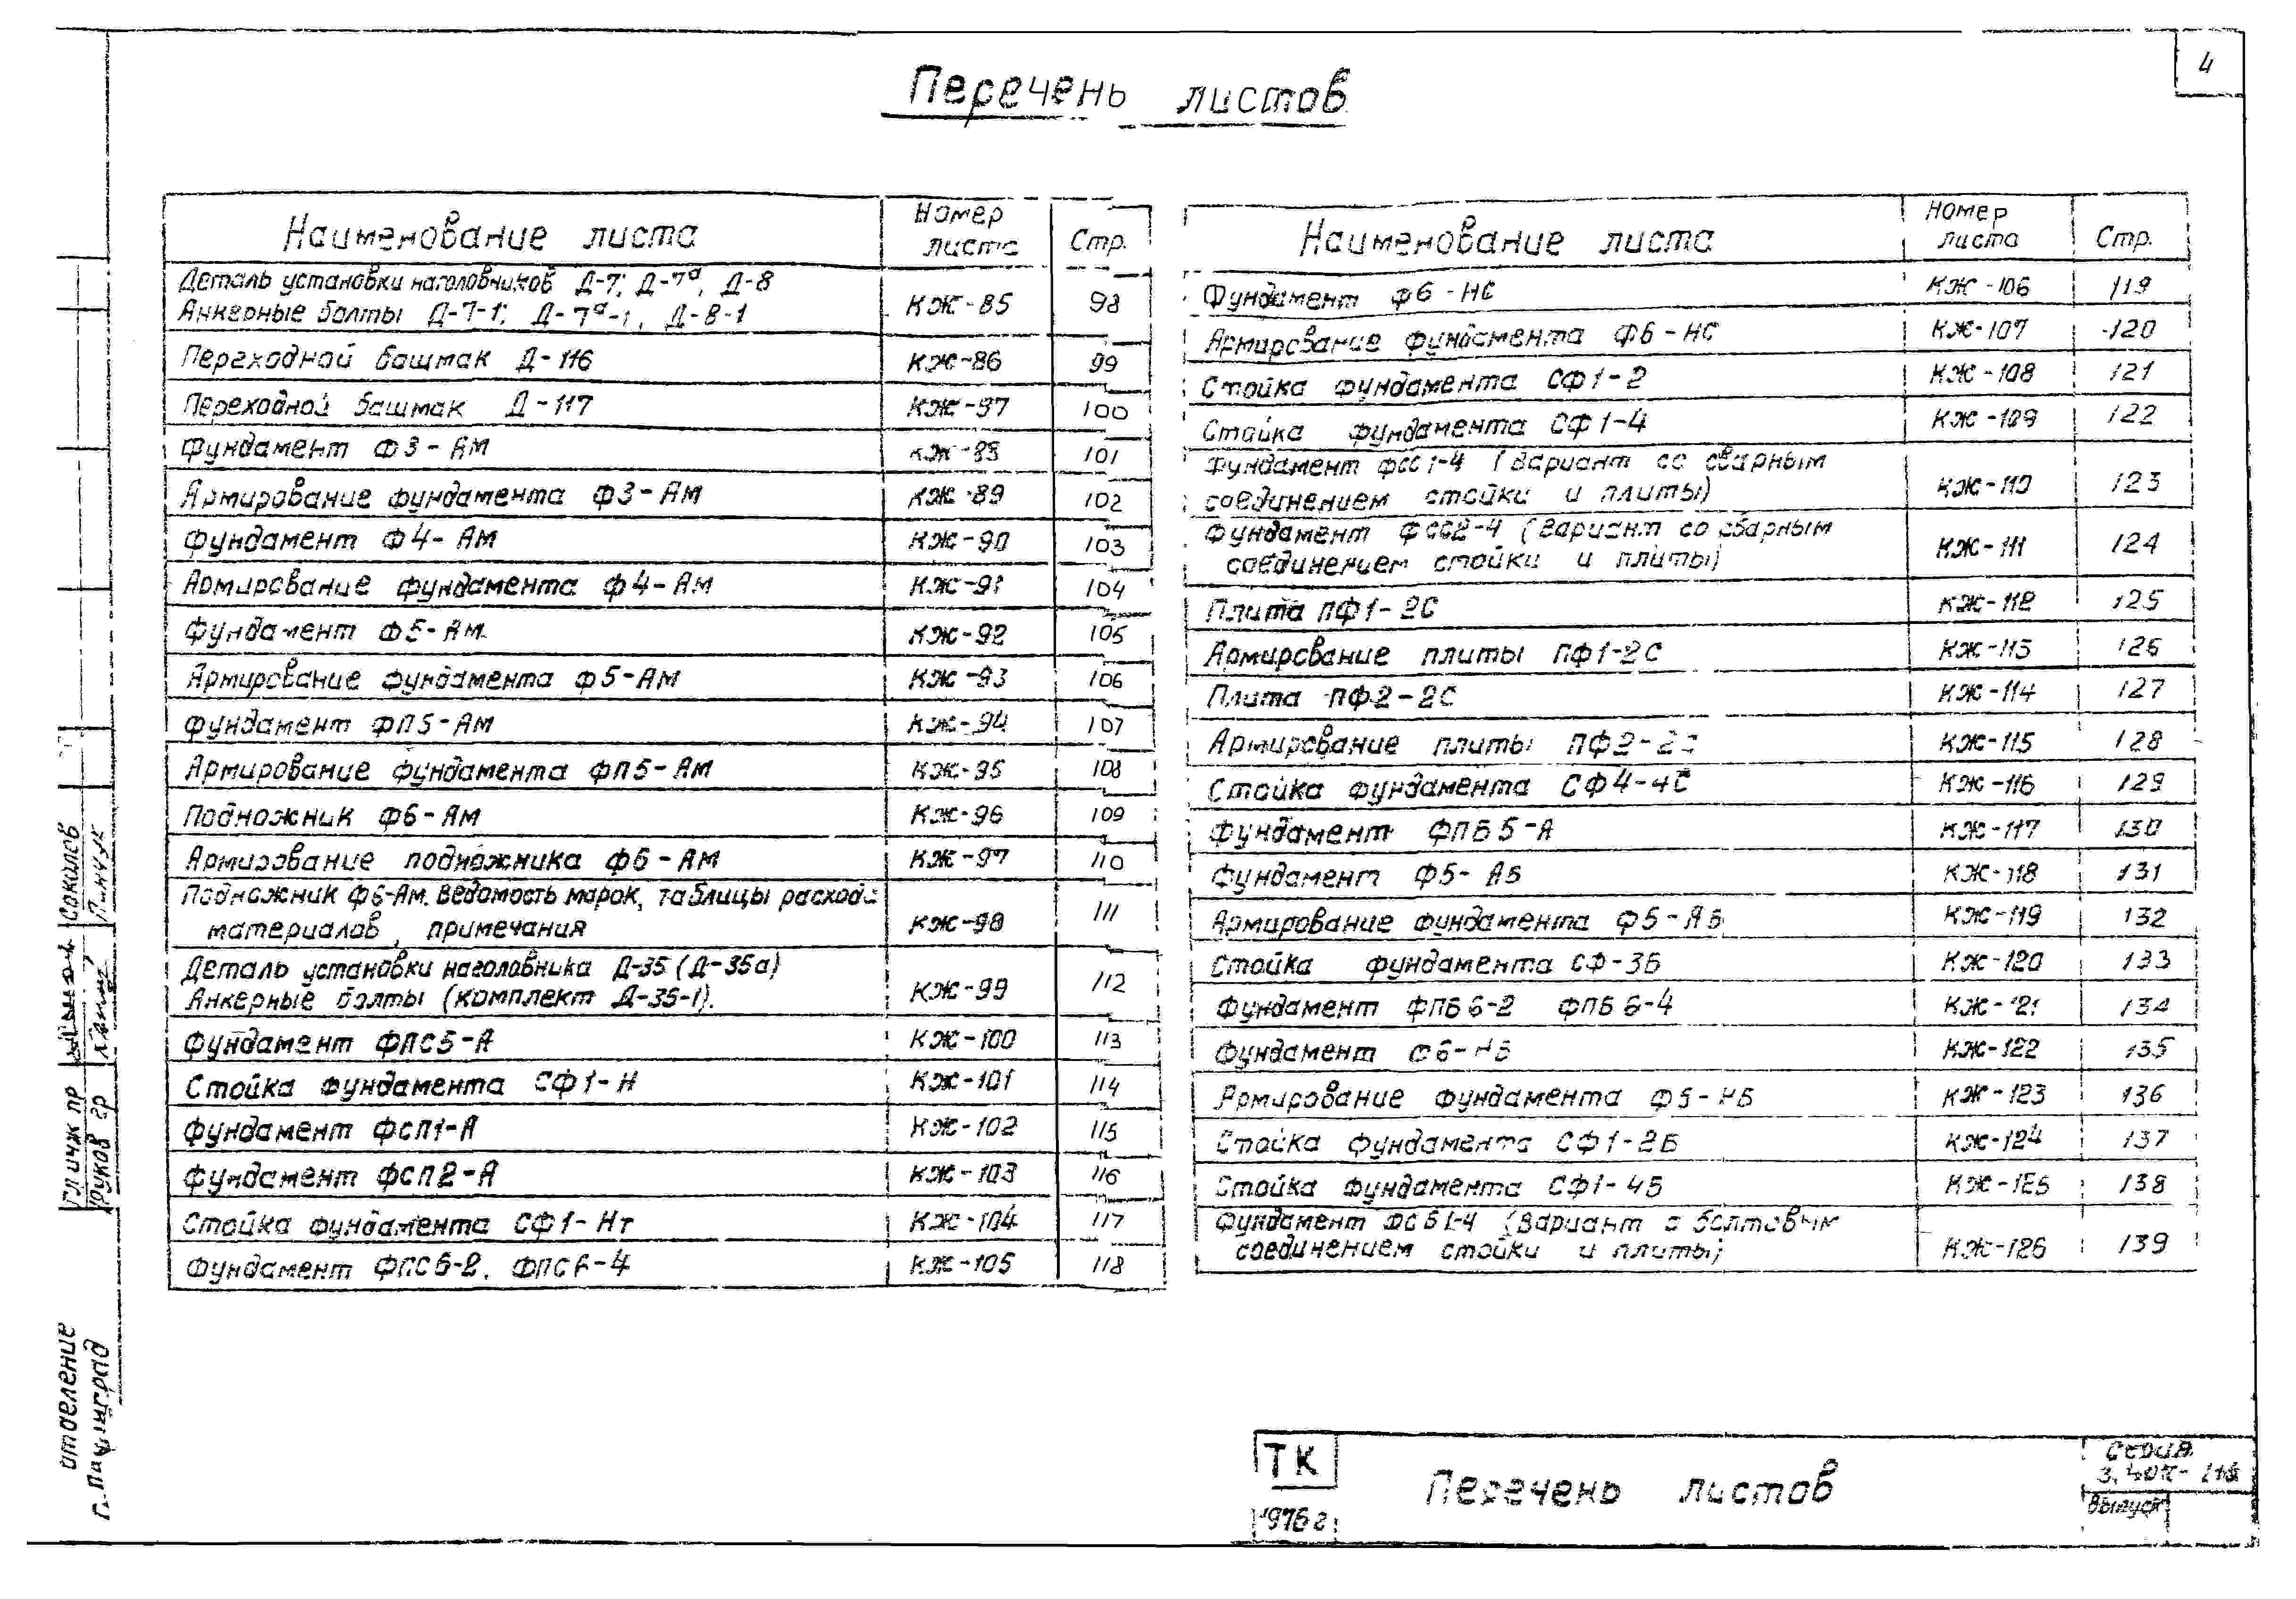 4
Перечень листов
Наименование листа Номер листа Стр.
Деталь установки наголовников Д-7; Д-7а, Д-8
Анкерные болты Д-7-1; Д-7а-1, Д-8-1 КЖ-85 98
Переходной башмак Д-116 КЖ-86 99
Переходной башмак Д-117 КЖ-97 100
Фундамент Ф3-Ам КЖ-88 101
Армирование фундамента Ф3-Ам КЖ-89 102
Фундамент Ф4-Ам КЖ-90 103
Армирование фундамента Ф4-Ам КЖ-91 104
Фундамент Ф5-Ам КЖ-92 105
Армирование фундамента Ф5-Ам КЖ-93 106
Фундамент ФП5-Ам КЖ-94 107
Армирование фундамента ФП5-Ам КЖ-95 108
Подножник Ф6-Ам КЖ-96 109
Армирование подножника Ф6-Ам КЖ-97 110
Подножник Ф6-Ам. Ведомость марок, таблицы расхода
материалов, примечания КЖ-98 111
Деталь установки наголовника Д-35 (Д-35а)
Анкерные болты (комплект Д-35-1). КЖ-99 112
Фундамент ФПС5-А КЖ-100 113
Стойка фундамента СФ1-Н КЖ-101 114
Фундамент ФСП1-А КЖ-102 115
Фундамент ФСП2-А КЖ-103 116
Стойка фундамента СФ1-Нт КЖ-104 117
Фундамент ФПС6-2, ФПС6-4 КЖ-105 118
Наименование листа Номер листа Стр.
Фундамент Ф6-НС КЖ-106 119
Армирование фундамента Ф6-НС КЖ-107 120
Стойка фундамента СФ1-2 КЖ-108 121
Стойка фундамента СФ1-4 КЖ-109 122
Фундамент ФСС1-4 (вариант со сварным
соединением стойки и плиты) КЖ-110 123
Фундамент ФСС2-4 (вариант со сварным
соединением стойки и плиты) КЖ-111 124
Плита ПФ1-2С КЖ-112 125
Армирование плиты ПФ1-2С КЖ-113 126
Плита ПФ2-2С КЖ-114 127
Армирование плиты ПФ2-2С КЖ-115 128
Стойка фундамента СФ4-4С КЖ-116 129
Фундамент ФПБ5-А КЖ-117 130
Фундамент Ф5-АБ КЖ-118 131
Армирование фундамента Ф5-АБ КЖ-119 132
Стойка фундамента СФ-3Б КЖ-120 133
Фундамент ФПБ6-2 ФПБ6-4 КЖ-121 134
Фундамент Ф6-НБ КЖ-122 135
Армирование фундамента Ф6-НБ КЖ-123 136
Стойка фундамента СФ1-2Б КЖ-124 137
Стойка фундамента СФ1-4Б КЖ-125 138
Фундамент ФСБ1-4 (вариант с болтовым
соединением стойки и плиты) КЖ-126 139
отделение
Гл инж пр Соколов
Руков гр
ТК
1976 г.
Перечень листов
Серия
Выпуск